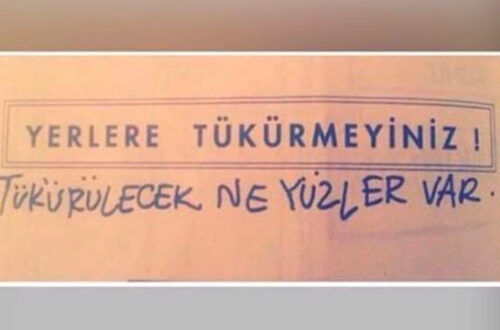 YERLERE TÜKÜRMEYİNİZ !
TÜKÜRÜLECEK NE YÜZLER VAR.